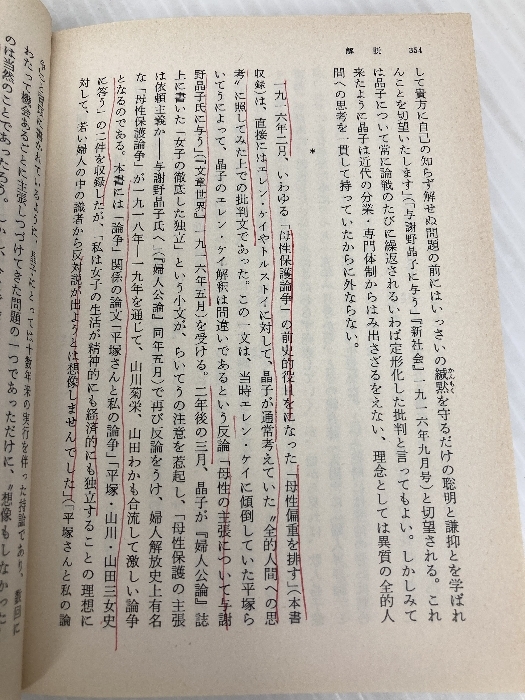 解説
354
して貴方に自己の知らず解せぬ問題の前にはいっさいの緘黙を守るだけの聡明と謙抑とを学ばれ
かんもく
んことを切望いたします」（「与謝野晶子に与う」『新社会』一九一六年九月号）と切望される。これ
は晶子について常に論戦のたびに繰返されるいわば定形化した批判と言ってもよい。しかしみて
来たように晶子は近代の分業・専門体制からはみ出さざるをえない、理念としては異質の全的人
間への思考を一貫して持っていたからに外ならない。
＊
一九一六年二月、いわゆる「母性保護論争」の前史的役目をになった「母性偏重を排す」（本書
収録）は、直接にはエレン・ケイやトルストイに対して、晶子が通常考えていた〝全的人間への思
考〟に照してみた上での批判文であった。この一文は、当時エレン・ケイに傾倒していた平塚ら
いてうによって、晶子のエレン・ケイ解釈は間違いであるという反論「母性の主張について与謝
野晶子氏に与う」（『文章世界』一九一六年五月）を受ける。二年後の三月、晶子が『婦人公論』誌
上に書いた「女子の徹底した独立」という小文が、らいてうの注意を惹起し、「母性保護の主張
は依頼主義か――与謝野晶子氏へ」（『婦人公論』同年五月）で再び反論をうけ、婦人解放史上有名
な「母性保護論争」が一九一八年―一九年を通じて、山川菊栄、山田わかも合流して激しい論争
となるのである。本書には「論争」関係の論文「平塚さんと私の論争」「平塚・山川・山田三女史
に答う」の二件を収録したが、「私は女子の生活が精神的にも経済的にも独立することの理想に
対して、若い婦人の中の識者から反対説が出ようとは想像しませんでした」（「平塚さんと私の論
わたって機会あるごとに主張しつづけてきた問題の一つであっただけに、〝想像もしなかった〟
のは当然のことであったろう。